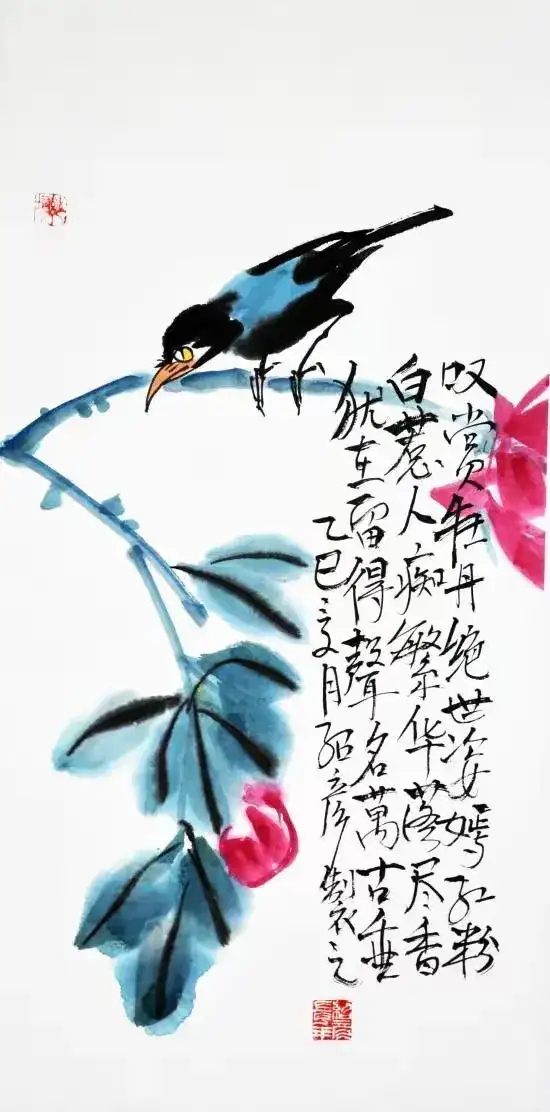 叹赏牡丹绝世姿嫣红粉
白惹人痴繁华落尽香
犹在留得聲名萬古垂
乙巳夏月绍彦製之